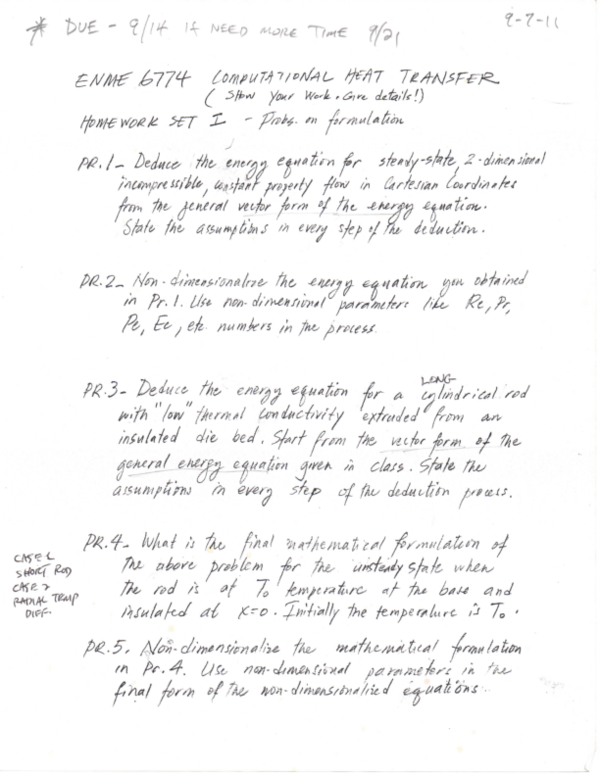 * DUE - 9/14 IF NEED MORE TIME 9/21
9-7-11
ENME 6774 COMPUTATIONAL HEAT TRANSFER
(Show Your Work. Give details!)
HOMEWORK SET I - Probs. on formulation
PR.1- Deduce the energy equation for steady-state, 2-dimensional
incompressible, constant property flow in Cartesian Coordinates
from the general vector form of the energy equation.
State the assumptions in every step of the deduction.
PR.2- Non-dimensionalize the energy equation you obtained
in Pr.1. Use non-dimensional parameters like Re, Pr,
Pe, Ec, etc. numbers in the process.
LONG
PR.3- Deduce the energy equation for a cylindrical rod
with "low" thermal conductivity extruded from an
insulated die bed. Start from the vector form of the
general energy equation given in class. State the
assumptions in every step of the deduction process.
PR.4- What is the final mathematical formulation of
the above problem for the unsteady state when
the rod is at To temperature at the base and
insulated at x=0. Initially the temperature is To.
CASE 1
SHORT ROD
CASE 2
RADIAL TEMP
DIFF.
PR.5. Non-dimensionalize the mathematical formulation
in Pr.4. Use non-dimensional parameters in the
final form of the non-dimensionalized equations.